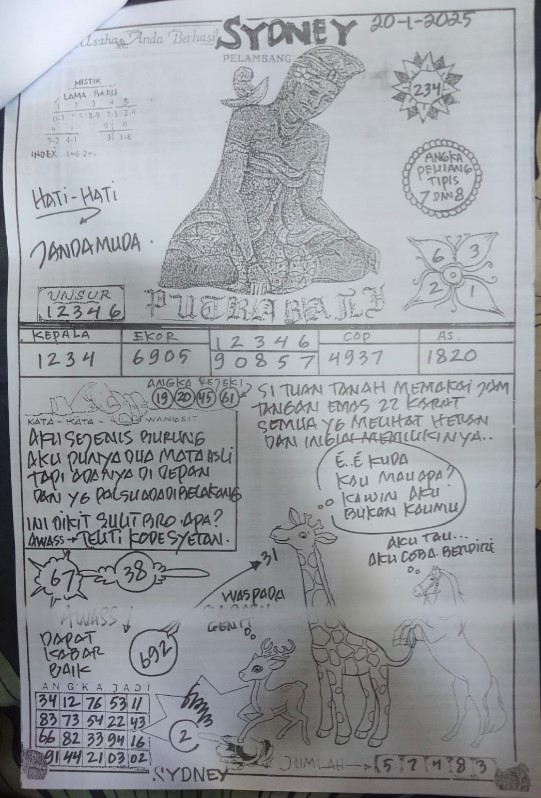 Usaha Anda Berhasil
SYDNEY
20-1-2025
PELAMBANG
MISTIK
LAMA BARU
INDEX
234
ANGKA
PELUANG
TIPIS
7 DAN 8
HATI-HATI
JANDA MUDA.
6 3
2 1
UNSUR
12346
PUTRA BALI
KEPALA EKOR 12346 COP AS.
1234 6905 90857 4937 1820
ANGKA REJEKI
19 20 45 61
KATA-KATA-WANGSIT
AKU SEJENIS BURUNG
AKU PUNYA DUA MATA ASLI
TAPI ADANYA DI DEPAN
DAN YG PALSU ADA DIBELAKANG
INI DIKIT SULIT BRO. APA?
AWASS → TELITI KODE SYETAN.
SI TUAN TANAH MEMAKAI JAM
TANGAN EMAS 22 KARAT
SEMUA YG MELIHAT HERAN
DAN INGIN MEMILIKINYA..
E..E KUDA
KAU MAU APA?
KAWIN AKU
BUKAN KAUMU
AKU TAU...
AKU COBA BERDIRI
67
38
31
WASPADA
GENIT
AWASS
DAPAT
KABAR
BAIK
692
ANGKA JADI
34 12 76 53 11
83 73 54 22 43
66 82 33 94 16
91 44 21 03 02
2
SYDNEY
JUMLAH → 5 7 4 8 3